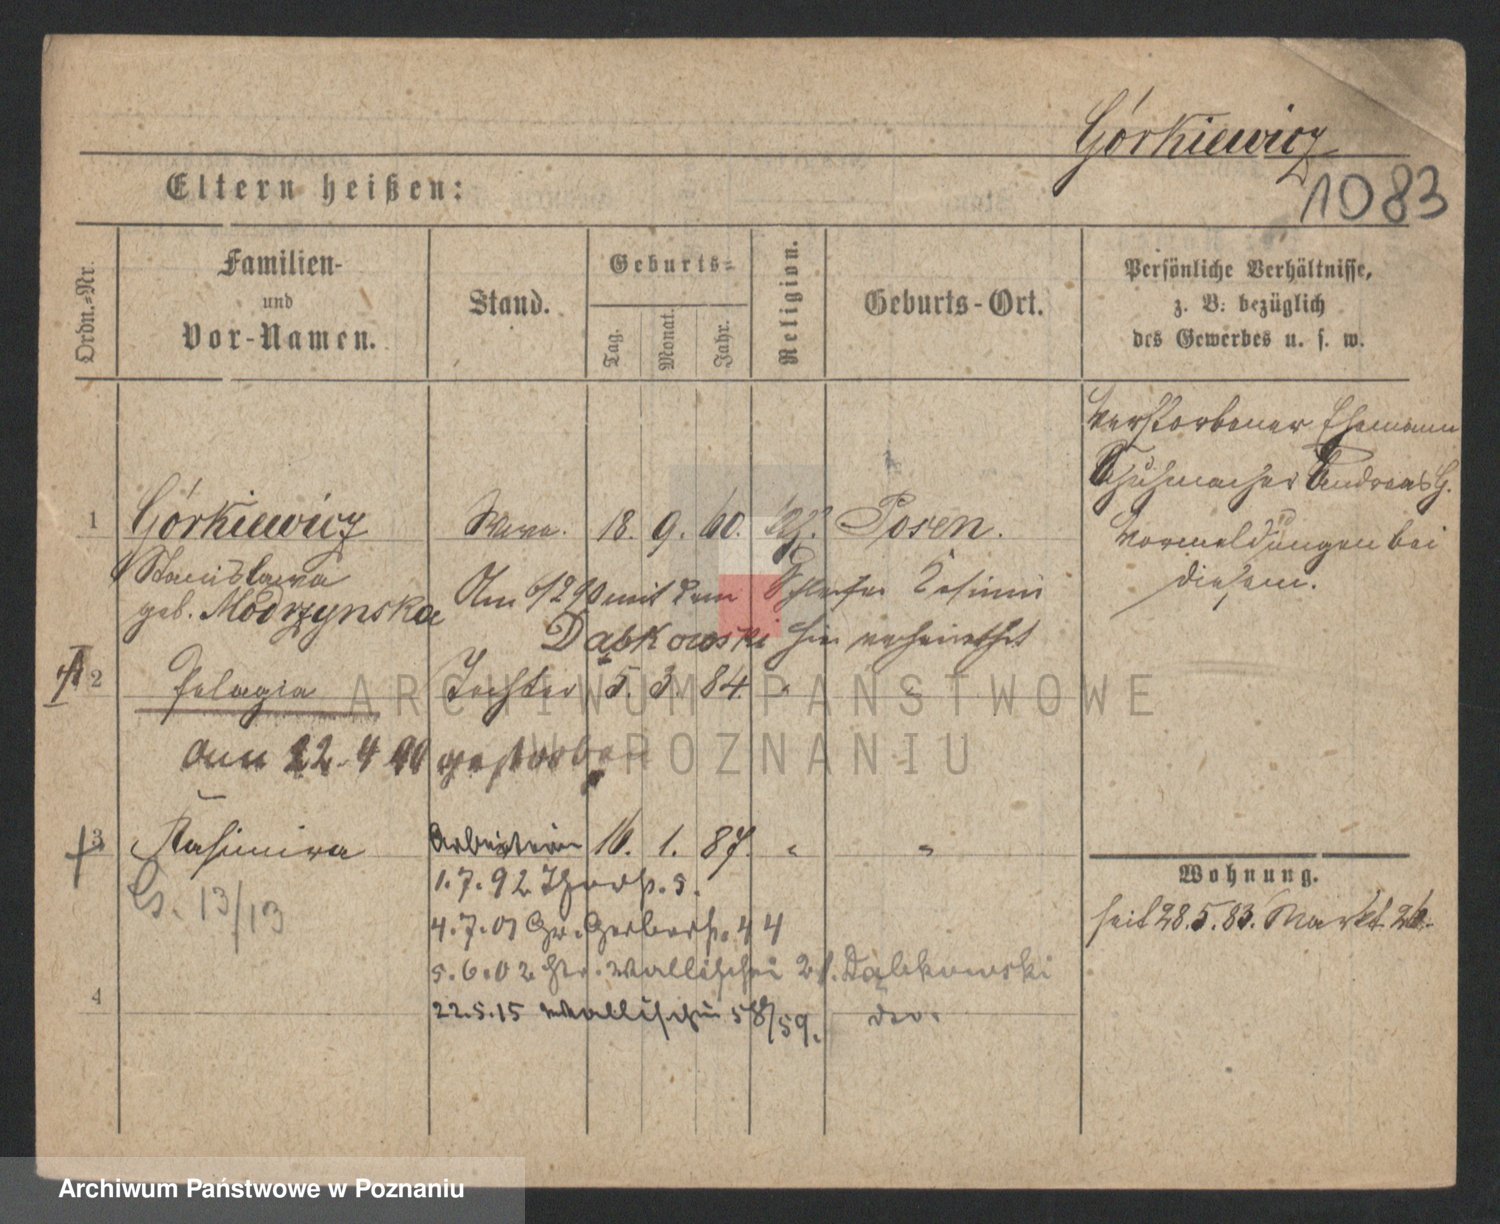 Górkiewicz
1083
Eltern heißen:
Ordn.=Nr.
Familien-
und
Vor-Namen.
Stand.
Geburts=
Tag.
Monat.
Jahr.
Religion.
Geburts-Ort.
Persönliche Verhältnisse,
z. B. bezüglich
des Gewerbes u. s. w.
Verstorbener Ehemann
Schuhmacher Andreas G.
Vormeldungen bei
diesem.
1 Górkiewicz Wwe. 18. 9. 60. kath. Posen.
Stanislawa
geb. Modrzynska
Am mit dem Casimir
Dąbkowski hier verheirathet
2 Pelagia Tochter 5. 3. 84 " "
am 22. 4 90 gestorben
3 Kasimira Arbeiterin 16. 1. 87. " "
1.7.92 Thorstr. 5.
13/13
4.7.01 Gr. Gerberstr. 44
5.6.02 Wallischei Dąbkowski
4
22.5.15 Wallischei 58/59. do.
Wohnung.
seit 28.5.83. Markt
ARCHIWUM PAŃSTWOWE
W POZNANIU
Archiwum Państwowe w Poznaniu